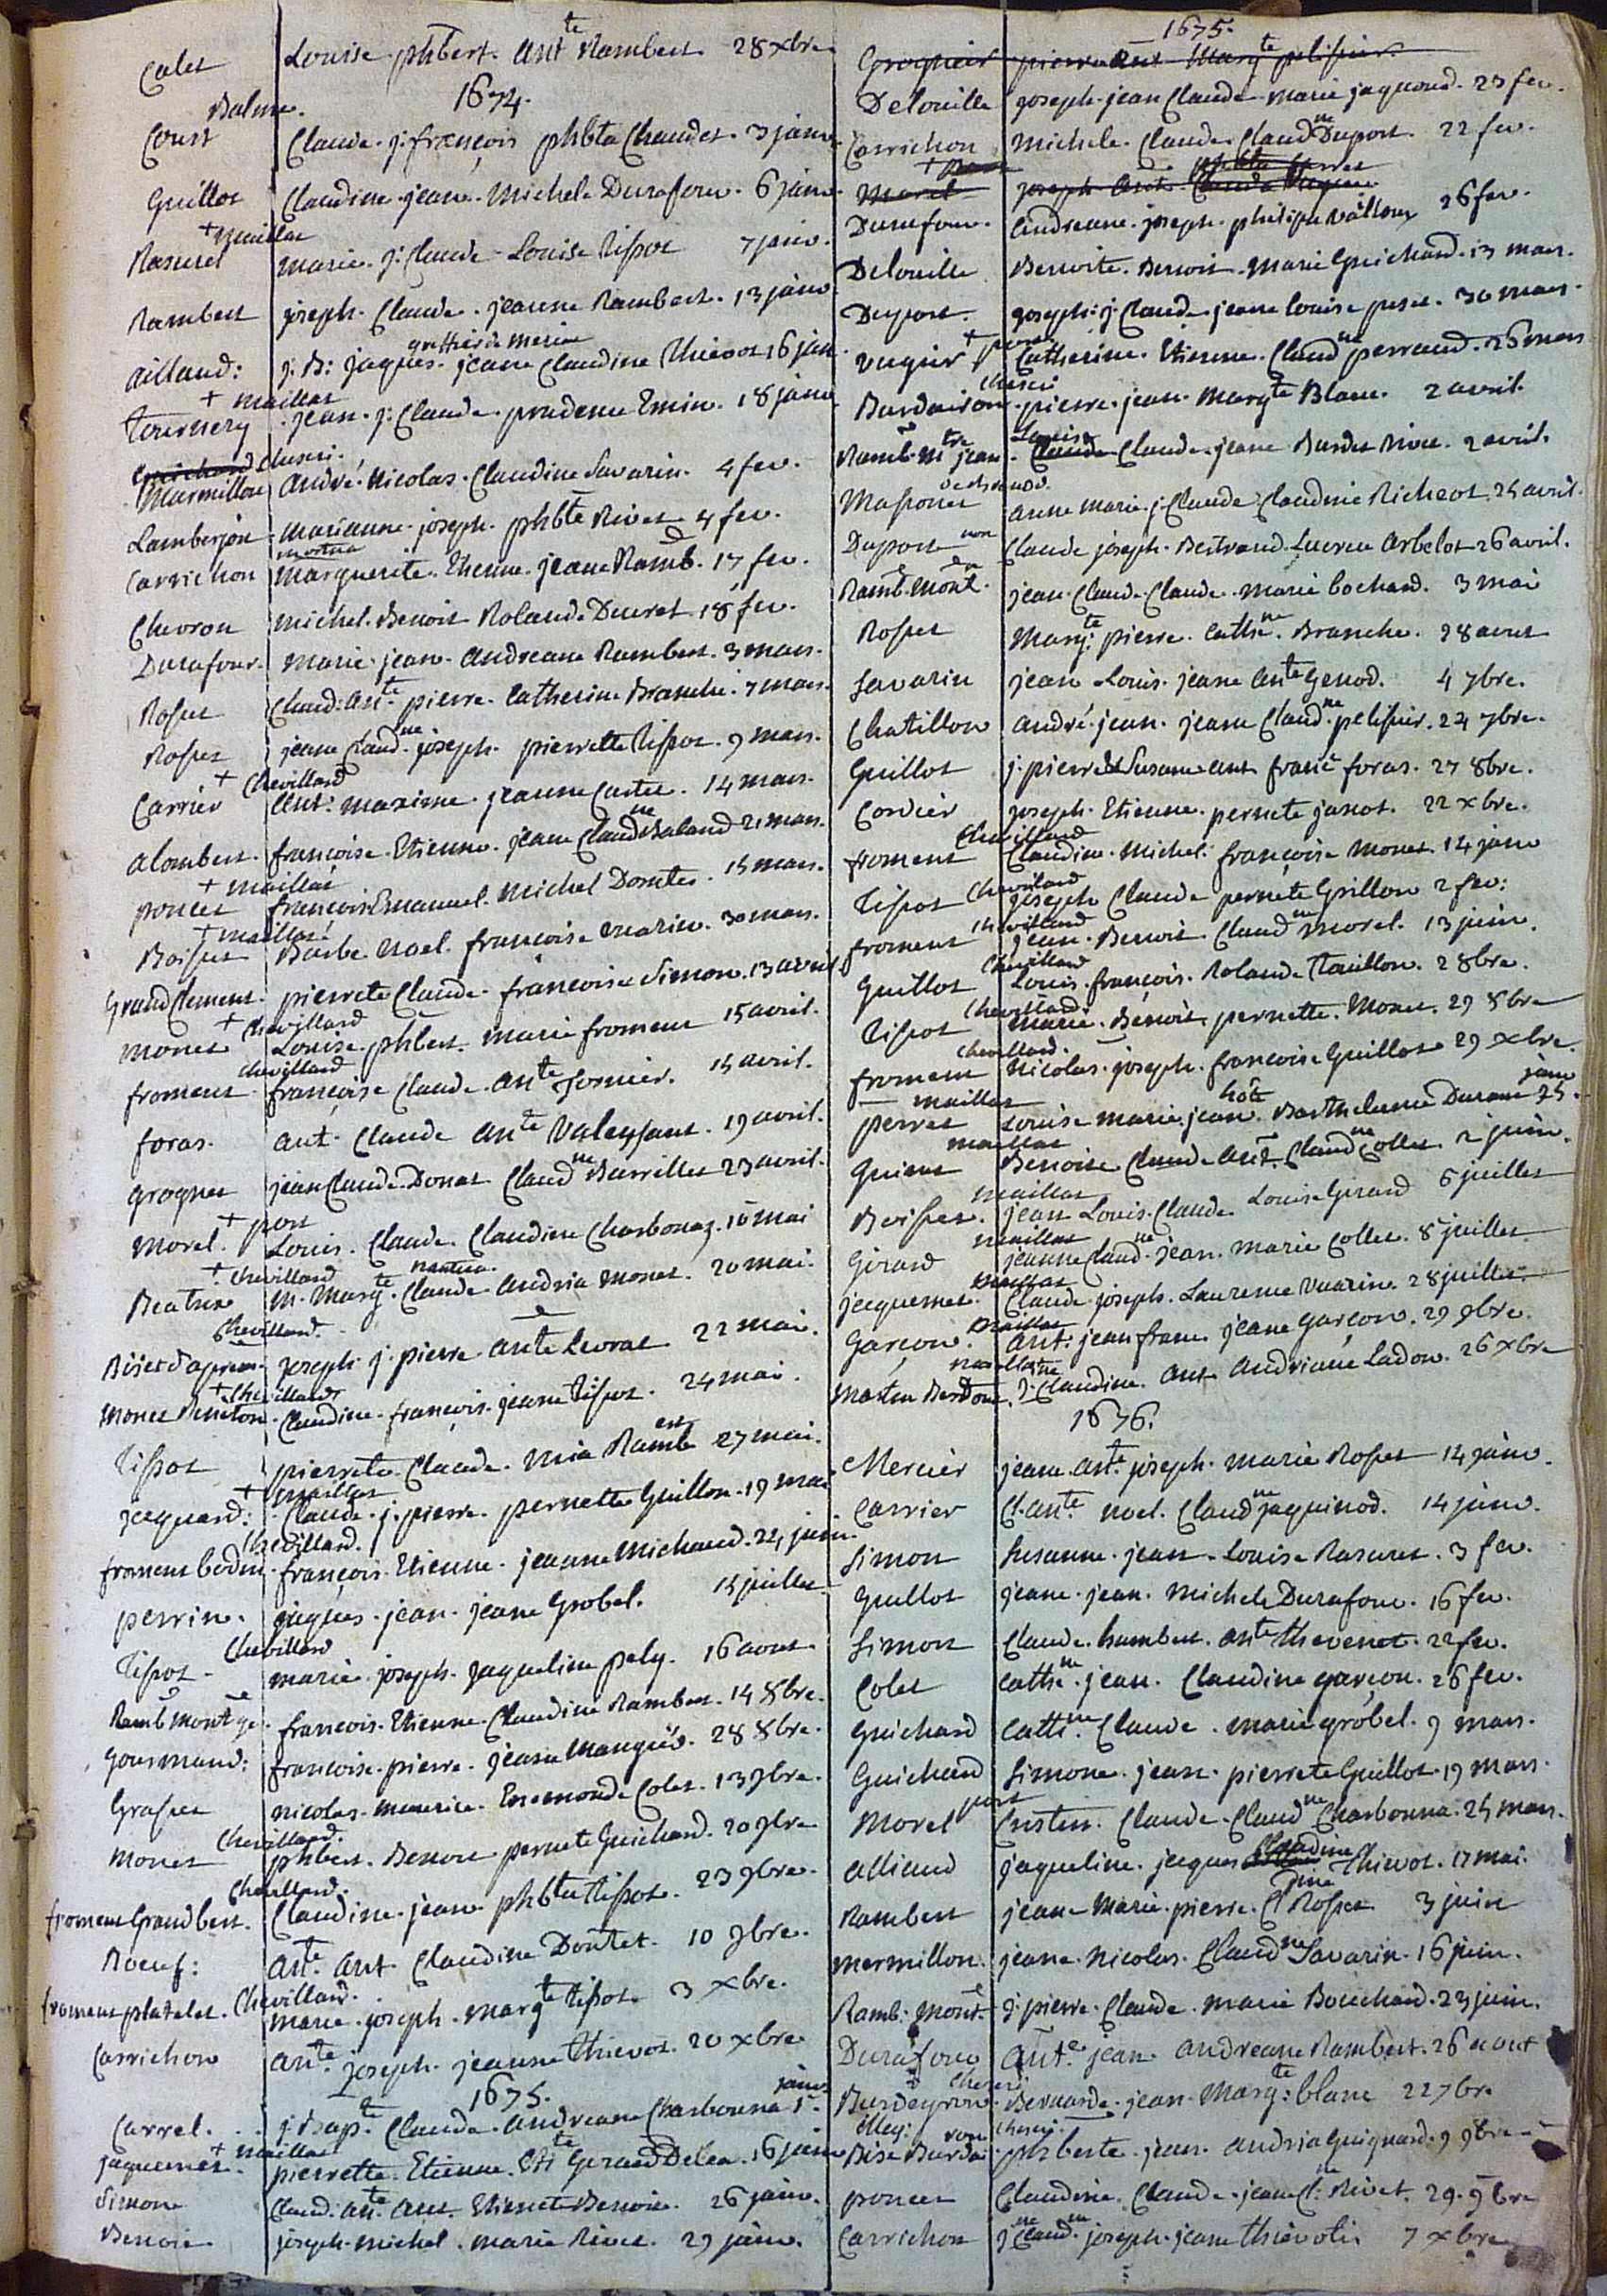 Colet Louise phbert. Ant.te Rambert 28 xbre
1674.
Balme.
Coust Claude. j. françois phbta Chaudet. 3 janv.
Guillot Claudine. jean. Michele Durafour. 6 janv.
+ maillat
Rasurel marie. j. Claude Louise Tissot 7 janv.
Rambert joseph. Claude. jeanne Rambert. 13 janv.
greffier de
ailland: j. B: jaques. jeane Claudine Thievot 16 jan
+ maillat
Tournery jean. j. Claude. prudence Emin. 18 janv.
Marmillon André. Nicolas. Claudine Savarin. 4 fev.
Lamberjon marianne. joseph. phbte Rivet 4 fev.
mortua
Carrichon Marguerite. Etienne. jeane Ramb. 17 fev.
Chevron michel. Benoit Rolande Ducret 18 fev.
Durafour. marie. jean. andreane Rambert. 3 mars.
Rosset Claud. An.te pierre. Catherine Branche. 7 mars.
Rosset jeane Claud.ne joseph. pierrette Tissot. 9 mars.
+ Chevillard
Carrier Ant: maxime. jeanne Cartu. 14 mars.
alombert. françoise. Etienne. jeane Claud.ne Baland 21 mars.
+ maillat
poncet françois Emanuel. Michel Domter. 15 mars.
+ maillat
Boisset Barbe noel. françoise marin. 30 mars.
Grand Clement. pierrete Claude. françoise Simon. 13 avril
+ Chevillard
monet Louise. phbert. marie froment 15 avril.
Chevillard
froment françoise Claude. An.te fornier. 15 avril.
foras. ant. Claude An.te Valeysant. 19 avril.
grognet jean Claude Donat Claud.ne Barrillet 23 avril.
+ port
Morel. Louis. Claude. Claudine Charbonaz. 10 mai
+ Chevillard nantua.
Beatrix m. Marg.te Claude andria monet. 20 mai.
Chevillard.
joseph. j. pierre ante Levrat 22 mai.
+ Chevillard
Monet Claudine. françois. jeane Tissot. 24 mai.
Tissot pierrete. Claude. mia Ramb.ert 27 mai.
+ maillat
jecquard: Claude. j. pierre. pernette Guillon. 19 mai
Chevillard.
froment bodin. françois. Etienne. jeanne Michaud. 24 juin.
perrin. jaques. jean. jeane Grobel. 15 juillet
Chevillard
Tissot marie. joseph. jaqueline paly. 16 aout.
Ramb. françois. Etienne. Claudine Rambert. 14 8bre.
Gourmand: françoise. pierre. jeane 28 8bre.
Grasset nicolas. maurice. Enemonde Colet. 13 9bre.
Chevillard.
Monet phbert. Benoit pernete Guichard. 20 9bre
Chevillard.
froment Grandbert. Claudine. jean phbte Tissot. 23 9bre.
Roeuf: An.te ant Claudine Doutet. 10 9bre.
froment platelet. Chevillard.
marie. joseph. marg.te Tissot 3 xbre.
Carrichon an.te joseph. jeanne thievot. 20 xbre
1675.
Carrel. j. Bap.te Claude. andreane Charbonna 1r. janv
+ maillat
jaquemet. pierrette. Etienne. Gerand Delea. 16 janv
Simon Claud. an.te ant. Etienete Benoit. 26 janv.
Benoit. joseph. michel. marie Rivet. 29 janv.
1675.
Grognier pierre Ant Marg.te pelissier
Delouille joseph. jean Claude marie jaquoud. 23 fev.
Carrichon michele. Claude. Claud.ne Dupont. 22 fev.
Morel joseph
Durafour. Andreane. joseph. philipa vallouz 26 fev.
Delouille Benoite. Benoit. Marie Guichard. 13 mars.
Dupont. joseph. j. Claude. jeane louise puset. 30 mars.
vuquier + port Catherine. Etienne. Claud.ne perraud. 26 mars
Burdairon. pierre. jean. Marg.te Blanc. 2 avril
Louise
Claude Claude. jeane Burdet 2 avril.
Massonet anne marie. j. Claude Claudine Richeot 25 avril.
Dupont non Claude joseph. Bertrand. Lucrece Arbelot 26 avril.
Ramb. mont. jean. Claude. Claude. marie bochard. 3 mai
Rosset Marg.te pierre. Cathe.ne Branche. 28 aout
Savarin jean Louis. jeane An.te Genod. 4 7bre.
Chatillon André. jean. jeane Claud.ne pelissier. 24 7bre.
Guillot j. pierre & Susane ant franc foras. 27 8bre.
Cordier joseph. Etienne. pernete janot. 22 xbre.
Chevillard
froment Claudine. Michel. françoise Monet. 14 janv
Chevillard
Tissot joseph Claude pernete Guillon 2 fev:
Chevillard
froment jean. Benoit. Claud.ne morel. 13 juin.
Chevillard
Guillot Louis. françois. Rolande Touillon. 2 8bre.
Chevillard
Tissot Marie. Benoit. pernette. Monet. 29 8bre
Chevillard.
froment Nicolas. joseph. françoise Guillot 29 xbre.
maillat hôte janv
perret Louise marie. jean. Barthelemie Durand 25.
maillat
Guinet Benoise Claude ant. Claud.ne Collet 2 juin.
maillat
Boisset. jean Louis. Claude. Louise Girard 6 juillet
maillat
Girard jeanne Claud.ne jean. marie Collet. 8 juillet.
maillat
jecquemet. Claude joseph. Laurence vuarin. 28 juillet.
maillat
Garçon. ant: jean franc. jeane Garçon. 29 9bre.
maillat
j. Claudine. Ant. Andriane Ladou. 26 xbre
1676.
Mercier jeane An.te joseph. marie Rosset 14 janv.
Carrier Cl. an.te noel. Claud.ne jaquinod. 14 janv.
Simon Susanne. jean. Louise Rasuret. 3 fev.
Guillot jeane. jean. Michele Durafour. 16 fev.
Simon Claude. humbert. an.te thevenet. 22 fev.
Colet Cathe.ne jean. Claudine garçon. 26 fev.
Guichard Cathe.ne Claude. marie grobel. 9 mars.
Guichard Simone. jean. pierrete Guillot. 19 mars.
Morel port Claude. Claud.ne Charbonna. 25 mars.
Alliand jaqueline. jaques Claudine Thievot. 17 mai.
Rambert jeane Marie. pierre. Cl.ine Rosset 3 juin
mermillon. jeane. Nicolas. Claud.ne Savarin. 16 juin.
Ramb. Mont. j. pierre. Claude. marie Bouchard. 23 juin.
Durafour Ant.e jean. andreane Rambert. 26 aout
Burdeyron. Bernarde. jean. Marg.te blanc 22 7bre
phberte. jean. andria Guignard. 9 9bre
poncet Claudine. Claude. jeane Cl.ne Rivet. 29. 9bre
Carrichon j. Claud.ne joseph. jeane 7 xbre